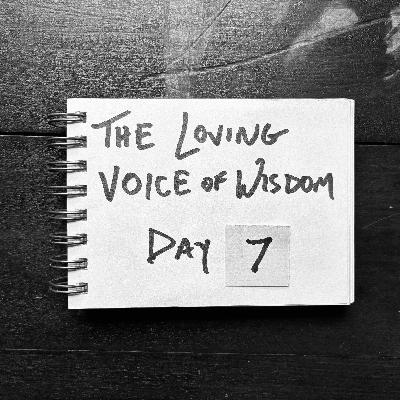 THE LOVING
VOICE OF WISDOM
DAY 7